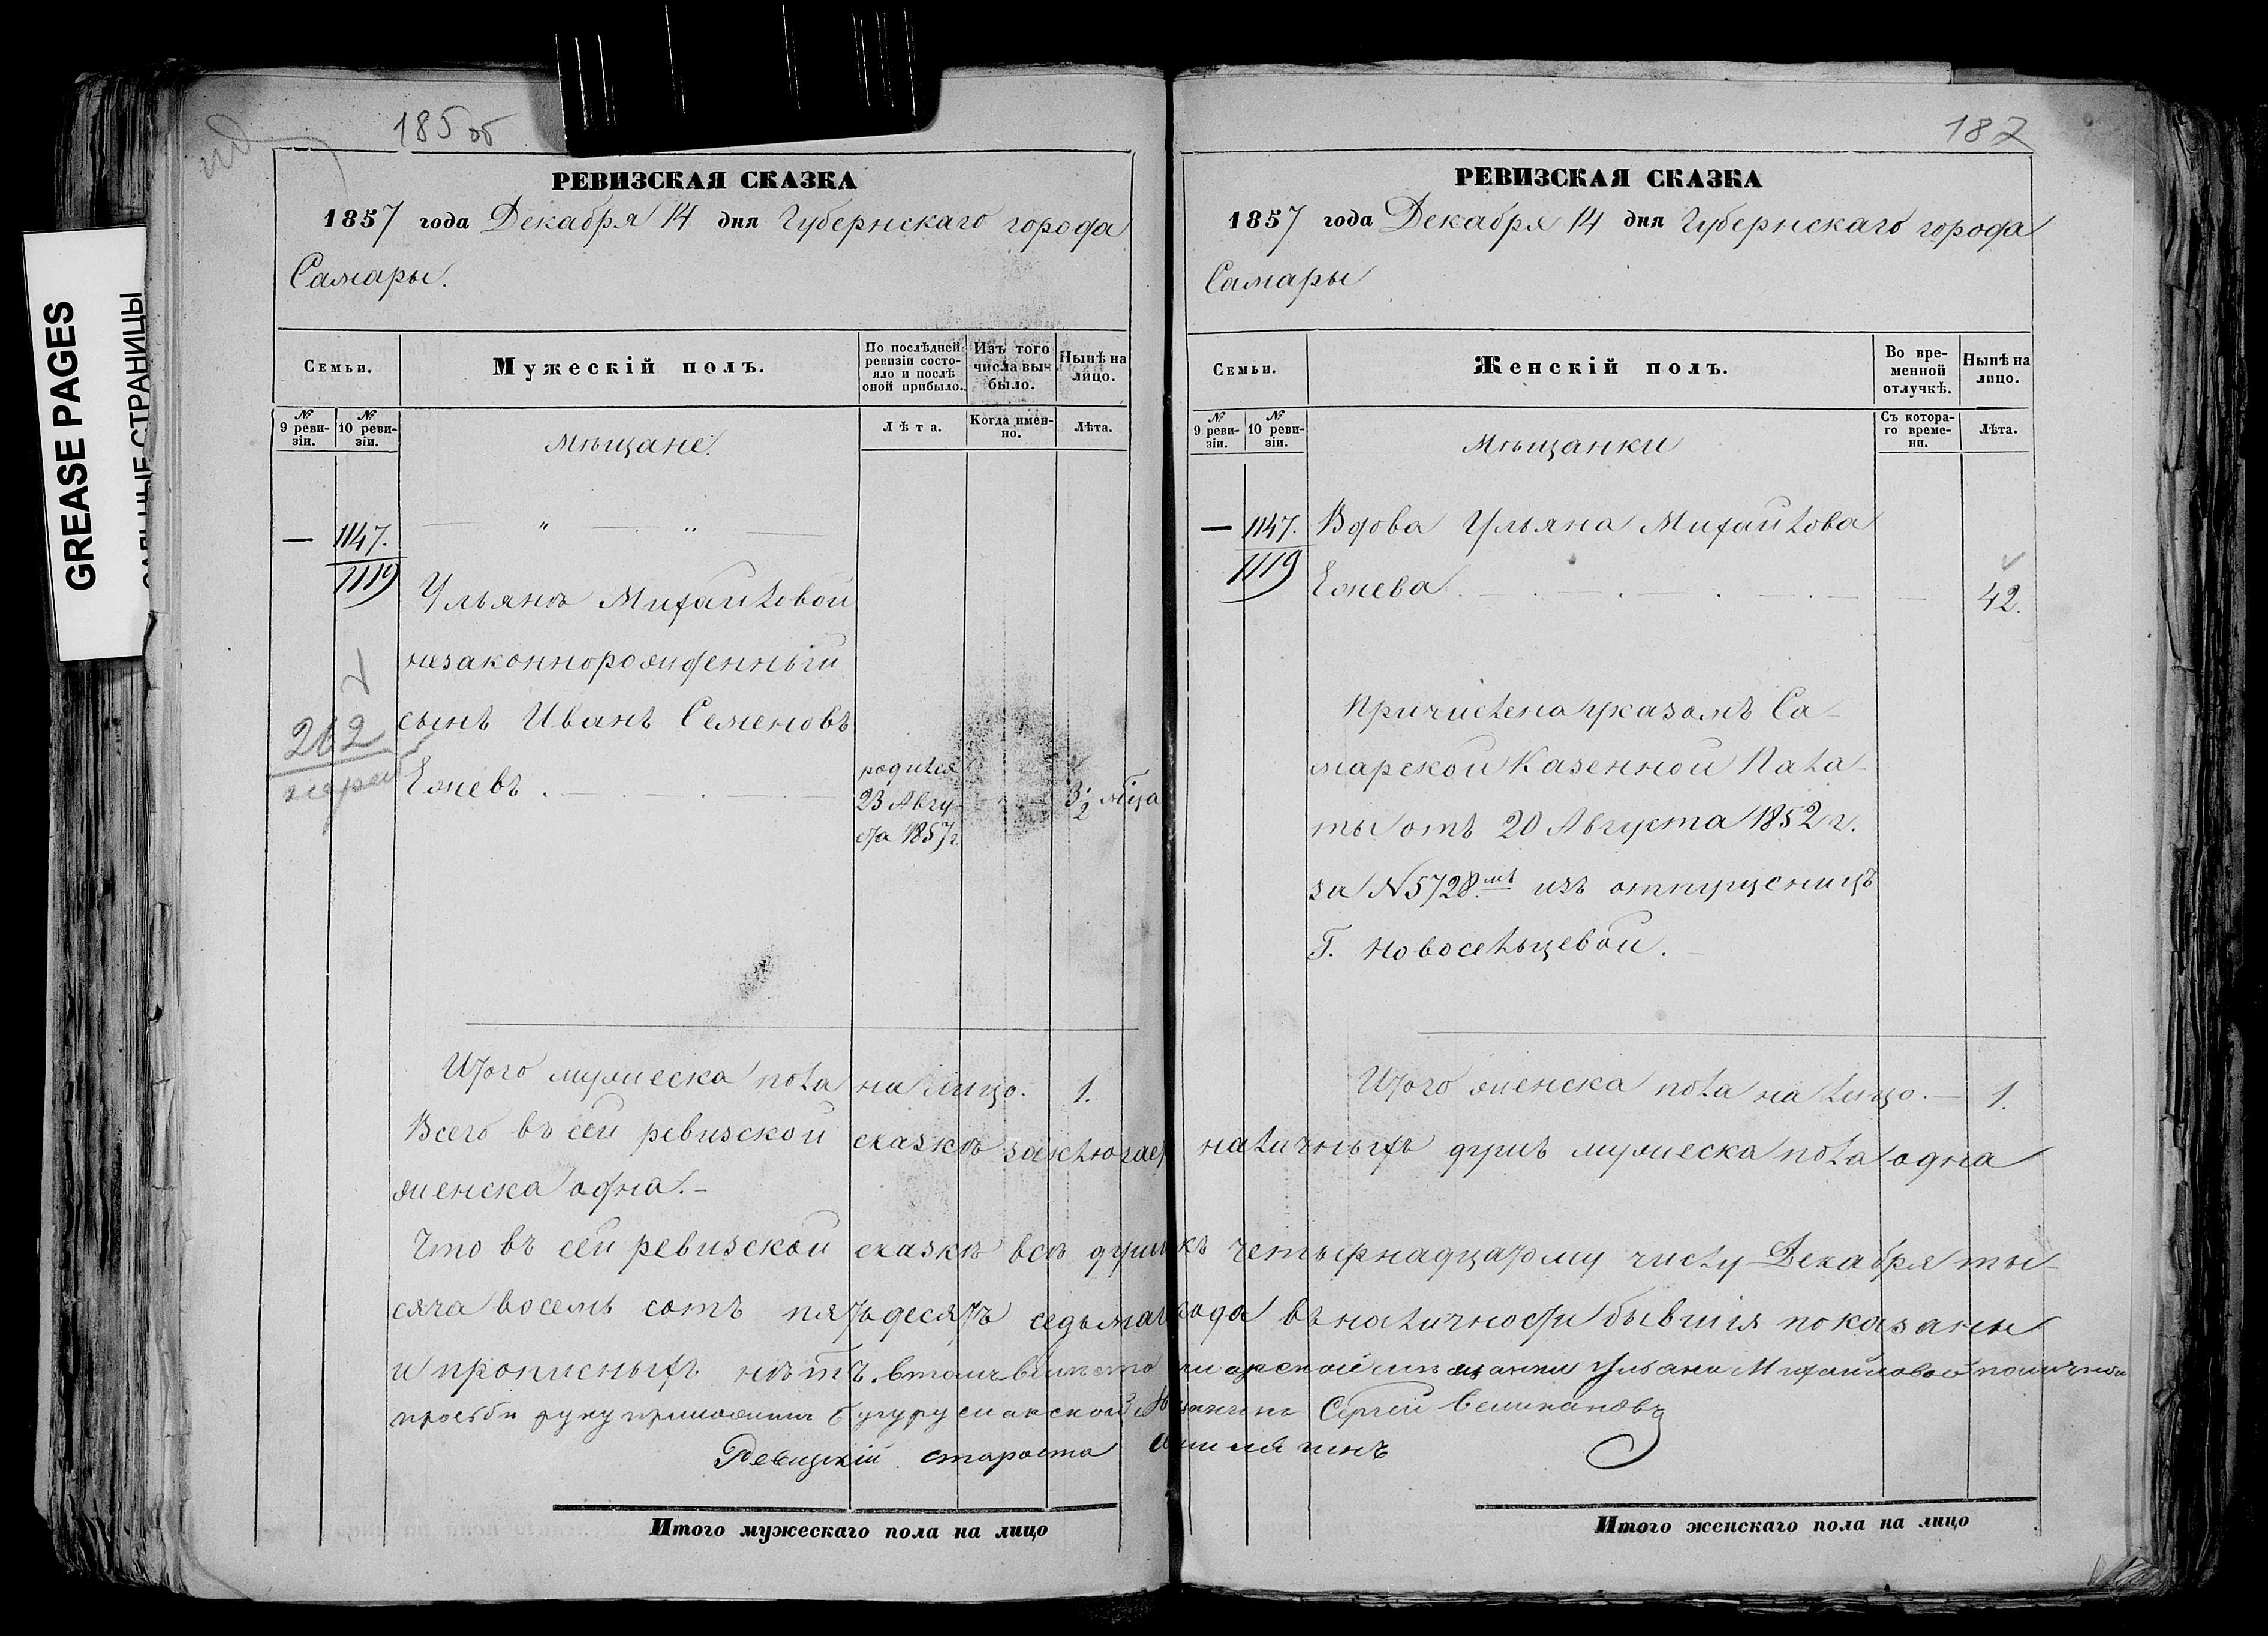 GREASE PAGES
185 об
РЕВИЗСКАЯ СКАЗКА
1857 года Декабря 14 дня Губернскаго города
Самары.
Семьи.
Мужескій полъ.
По послѣдней ревизіи состояло и послѣ оной прибыло.
Изъ того числа выбыло.
Нынѣ на лицо.
№ 9 ревизіи.
№ 10 ревизіи.
мѣщане.
Лѣта.
Когда именно.
Лѣта.
— 1147.
1119
Ульяны Михайловой
незаконнорожденный
сынъ Иванъ Семеновъ
262
Ежевъ.
родился
23 Авгу-
ста 1857 г
3 1/2 мѣца
Итого мужеска пола на лицо. 1.
Всего въ сей ревизской сказкѣ заключает
женска одна.-
Что въ сей ревизской сказкѣ всѣ души
сяча восемь сотъ пятьдесятъ седьмаго
и прописныхъ нѣтъ. втомъ вмѣсто
просьбы руку приложилъ Бугурусланской
Ревизскій староста
Итого мужескаго пола на лицо
187
РЕВИЗСКАЯ СКАЗКА
1857 года Декабря 14 дня Губернскаго города
Самары
Семьи.
Женскій полъ.
Во временной отлучкѣ.
Нынѣ на лицо.
№ 9 ревизіи.
№ 10 ревизіи.
мѣщанки
Съ котораго времени.
Лѣта.
— 1147. Вдова Ульяна Михайлова
1119
Ежева. 42.
Причислена указомъ Са-
марской Казенной Пала-
ты отъ 20 Августа 1852 г.
за №5728.мъ изъ отпущеницъ
Г. Новосельцевой.
Итого женска пола на лицо.— 1.
наличныхъ душъ мужеска пола одна
къ четырнадцатому числу Декабря ты-
года въ наличности бывшія показаны
мѣщанки Ульяны Михайловой по личной
Сергій Селивановъ
Итого женскаго пола на лицо